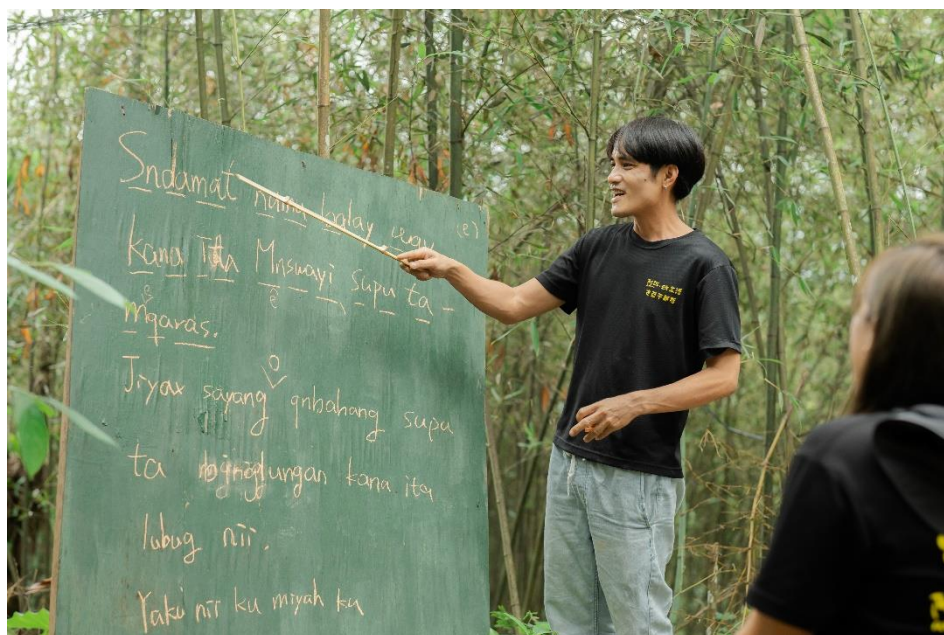 Sndamat nama balay (e)
kana Ita Mnswayi supu ta -
mqaras.
Jiyax sayang qnbahang supu
ta lungan kana ita
lubug nii.
Yaku nii ku miyah ku